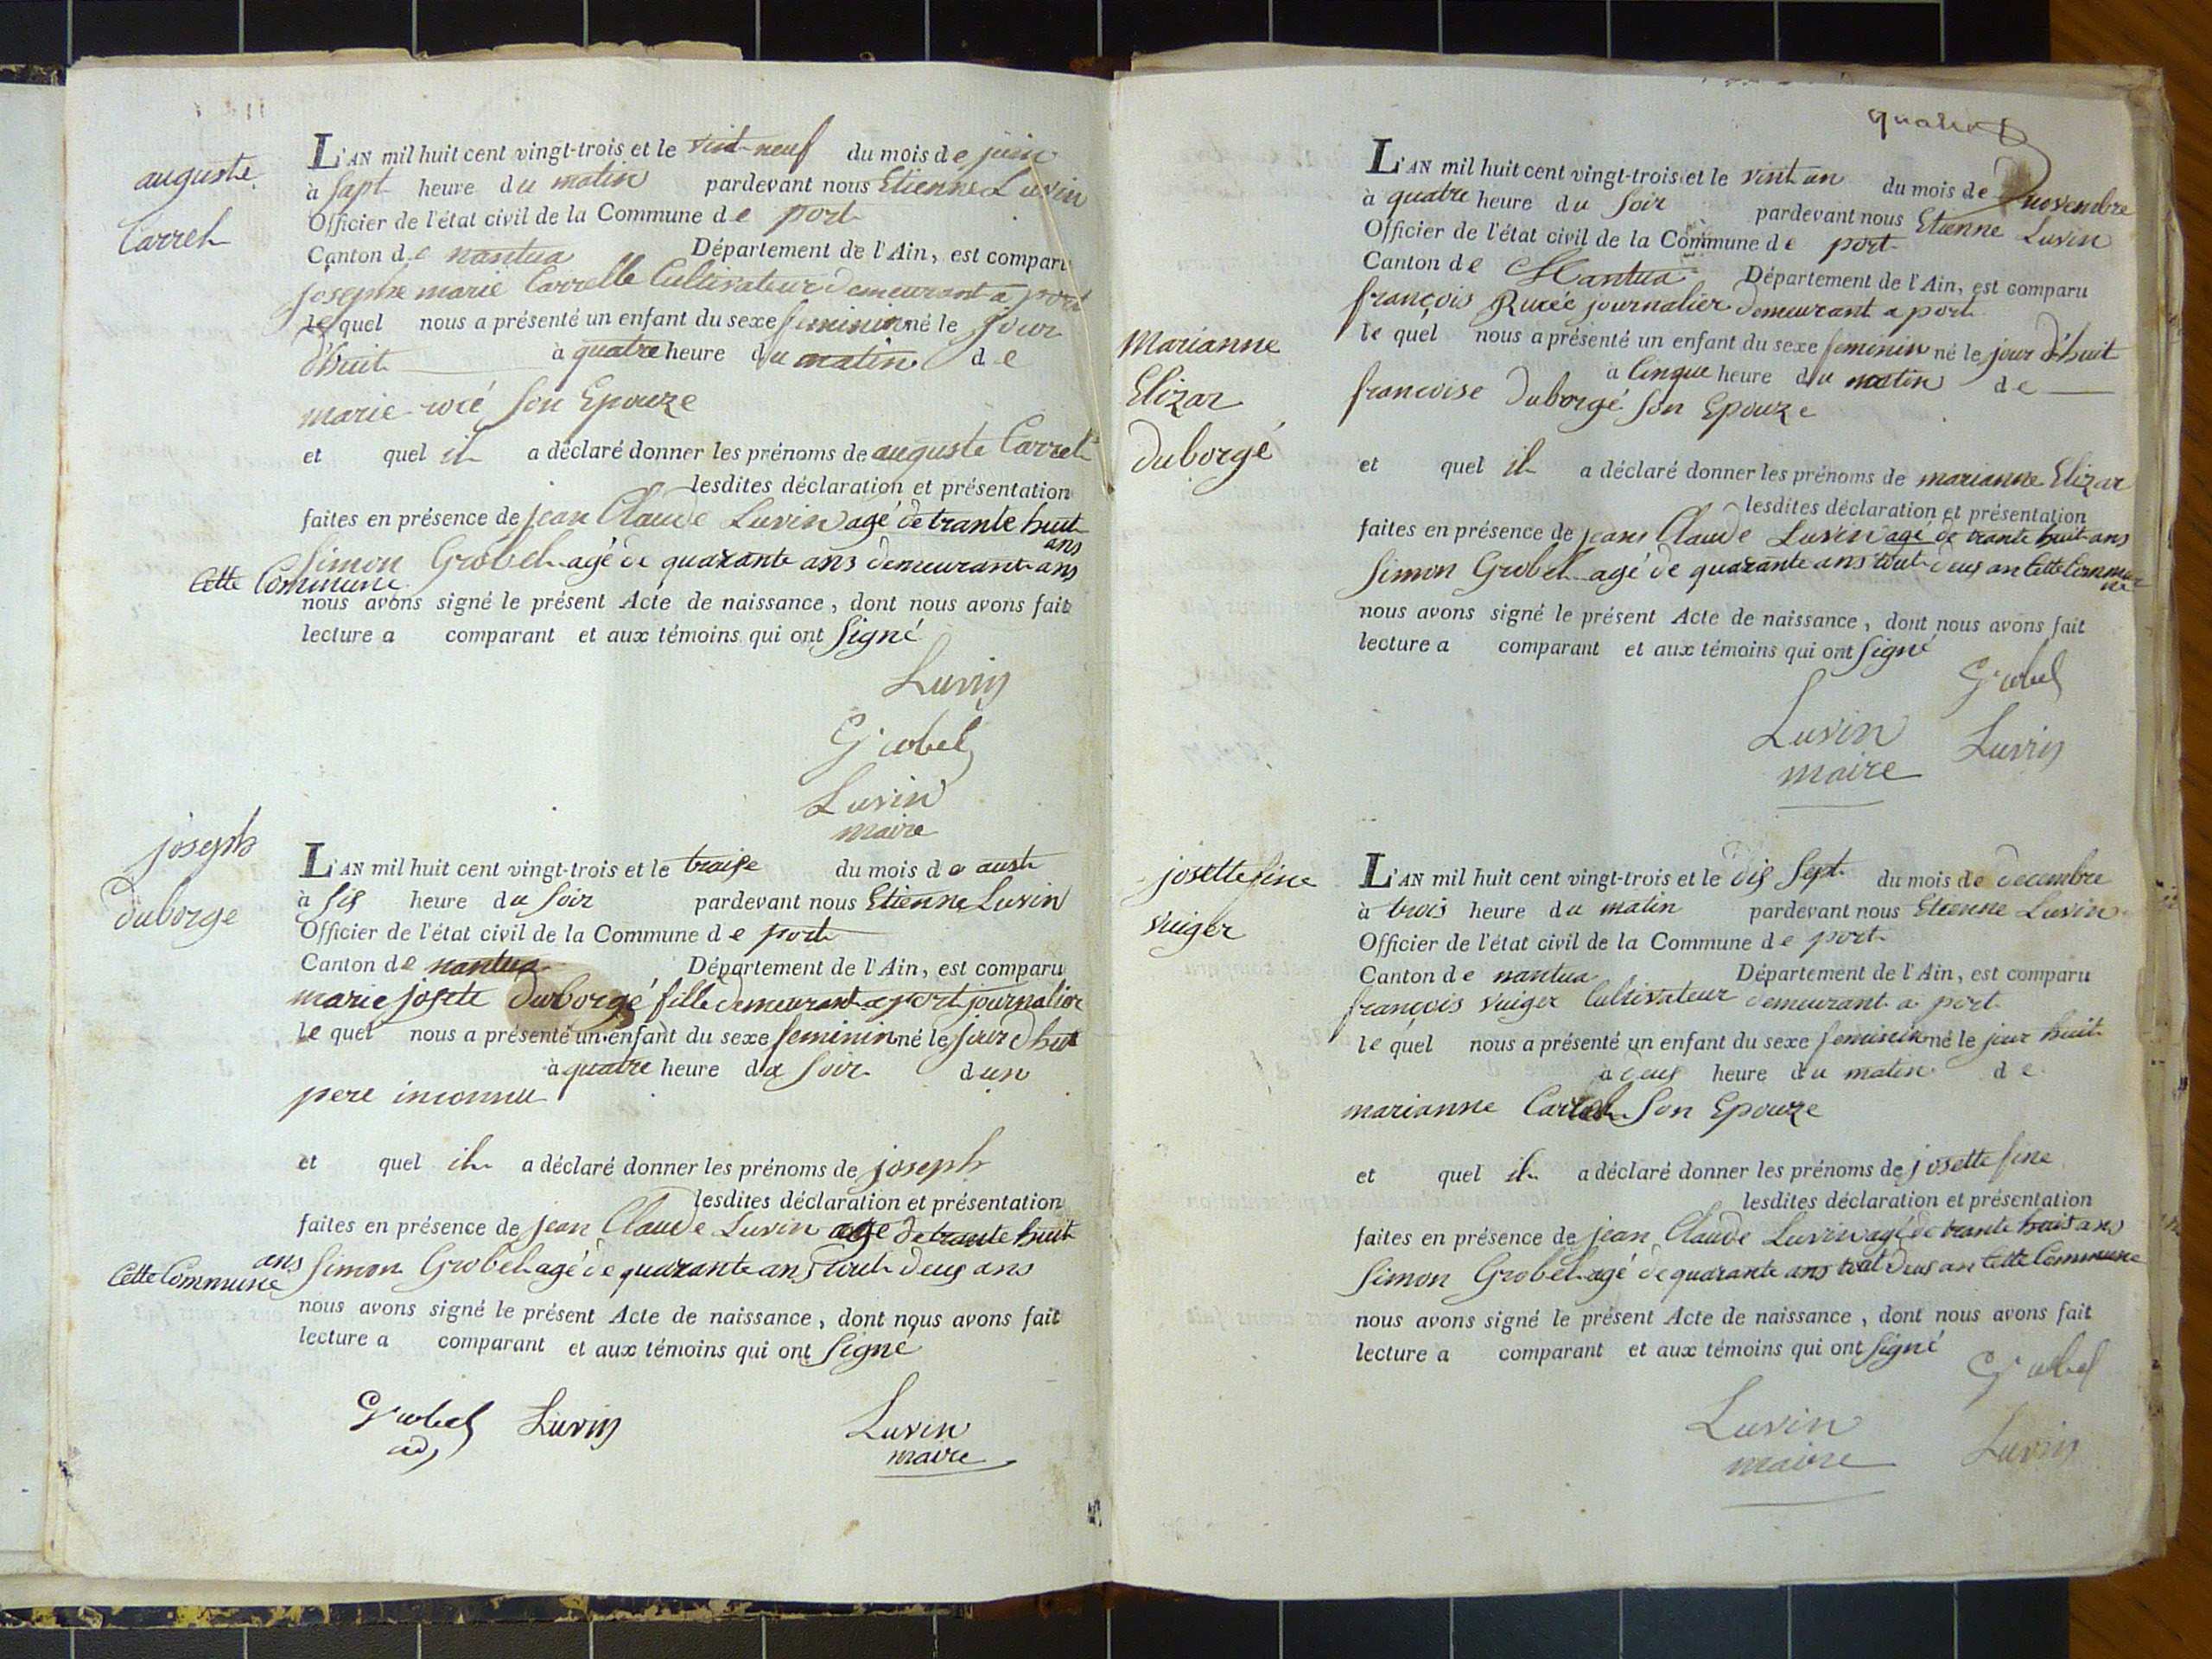 auguste
Carret
L'AN mil huit cent vingt-trois et le vint-neuf du mois de juin
à sapt heure du matin pardevant nous Etienne Luvin
Officier de l'état civil de la Commune de port
Canton de nantua Département de l'Ain, est comparu
josephe marie Carrelle Cultivateur demeurant a port
lequel nous a présenté un enfant du sexe feminin né le jour
d'huit à quatre heure du matin de
marie son Epouze
et quel il a déclaré donner les prénoms de auguste Carret
lesdites déclaration et présentation
faites en présence de jean Claude Luvin agé de trante huit
ans
Simon Grobel agé de quarante ans demeurant ans
Cette Commune
nous avons signé le présent Acte de naissance, dont nous avons fait
lecture a comparant et aux témoins qui ont Signé
Luvin
Grobel
Luvin
maire
joseph
duborge
L'AN mil huit cent vingt-trois et le traise du mois de aust
à sis heure du soir pardevant nous Etienne Luvin
Officier de l'état civil de la Commune de port
Canton de nantua Département de l'Ain, est comparu
marie josete duborgé fille demeurant a port journalier
le quel nous a présenté un enfant du sexe feminin né le jour dhui
à quatre heure du soir dun
pere inconnu
et quel il a déclaré donner les prénoms de joseph
lesdites déclaration et présentation
faites en présence de jean Claude Luvin age de trante huit
ans Simon Grobel agé de quarante ans tout deus ans
Cette Commune
nous avons signé le présent Acte de naissance, dont nous avons fait
lecture a comparant et aux témoins qui ont Signé
Grobel Luvin Luvin
adj maire
L'AN mil huit cent vingt-trois et le vint un du mois de novembre
à quatre heure du soir pardevant nous Etienne Luvin
Officier de l'état civil de la Commune de port
Canton de Nantua Département de l'Ain, est comparu
françois journalier demeurant a port
le quel nous a présenté un enfant du sexe feminin né le jour d'huit
à cinque heure du matin de
francoise duborgé son Epouze
Marianne
Elizar
duborgé
et quel il a déclaré donner les prénoms de marianne Elizar
lesdites déclaration et présentation
faites en présence de jean Claude Luvin agé de trante huit ans
Simon Grobel agé de quarante ans tout deus an Cette Commune
nous avons signé le présent Acte de naissance, dont nous avons fait
lecture a comparant et aux témoins qui ont Signé
Grobel
Luvin Luvin
maire
josettefine
vuiger
L'AN mil huit cent vingt-trois et le dis sept du mois de decembre
à trois heure du matin pardevant nous Etienne Luvin
Officier de l'état civil de la Commune de port
Canton de nantua Département de l'Ain, est comparu
françois vuiger Cultivateur demeurant a port
le quel nous a présenté un enfant du sexe feminin né le jour huit
à deus heure du matin de
marianne Carret son Epouze
et quel il a déclaré donner les prénoms de josette fine
lesdites déclaration et présentation
faites en présence de jean Claude Luvin agé de trante huit ans
Simon Grobel agé de quarante ans tout deus an Cette Commune
nous avons signé le présent Acte de naissance, dont nous avons fait
lecture a comparant et aux témoins qui ont Signé
Grobel
Luvin Luvin
maire